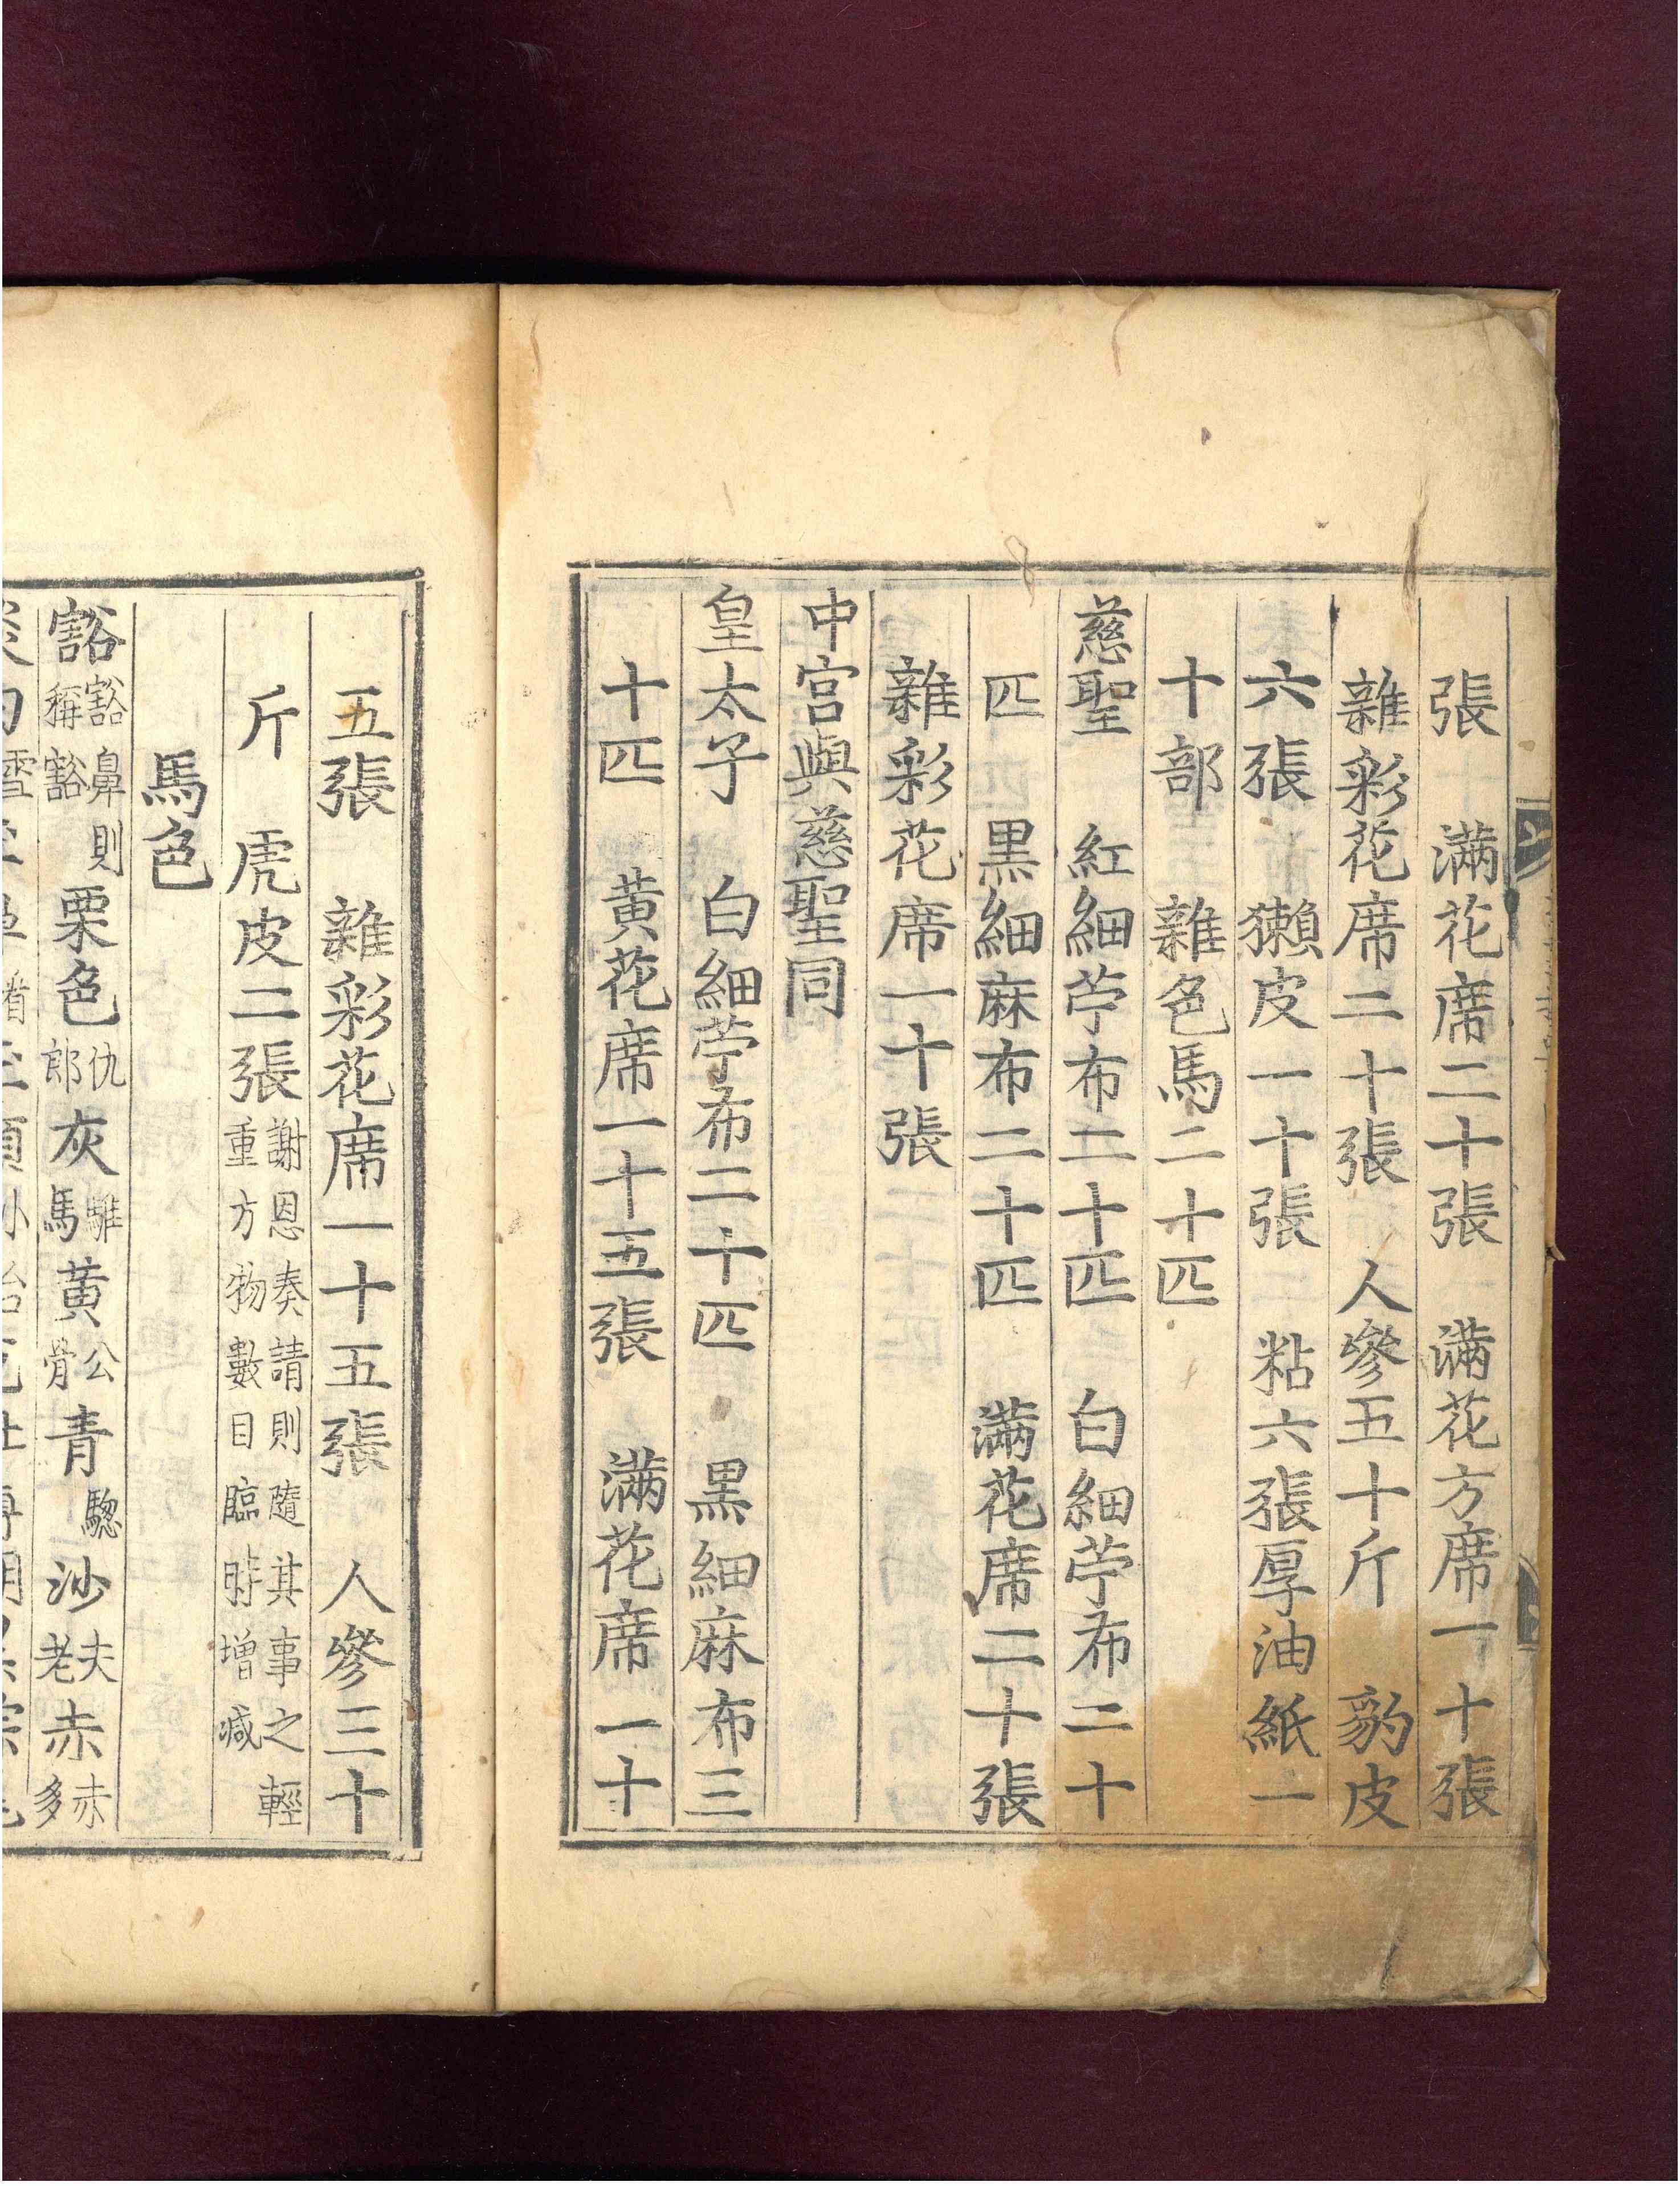 張　滿花席二十張　滿花方席一十張
雜彩花席二十張　人參五十斤　豹皮
六張　獺皮一十張　粘六張厚油紙一
十部　雜色馬二十匹
慈聖　紅細苧布二十匹　白細苧布二十
匹　黑細麻布二十匹　滿花席二十張
雜彩花席一十張
中宮與慈聖同
皇太子　白細苧布二十匹　黑細麻布三
十匹　黃花席一十五張　滿花席一十
五張　雜彩花席一十五張　人參三十
斤　虎皮二張謝恩奏請則隨其事之輕重方物數目臨時增減
馬色
豁豁鼻則稱豁栗色仇郎灰騅馬黃公骨青驄沙夫老赤赤多